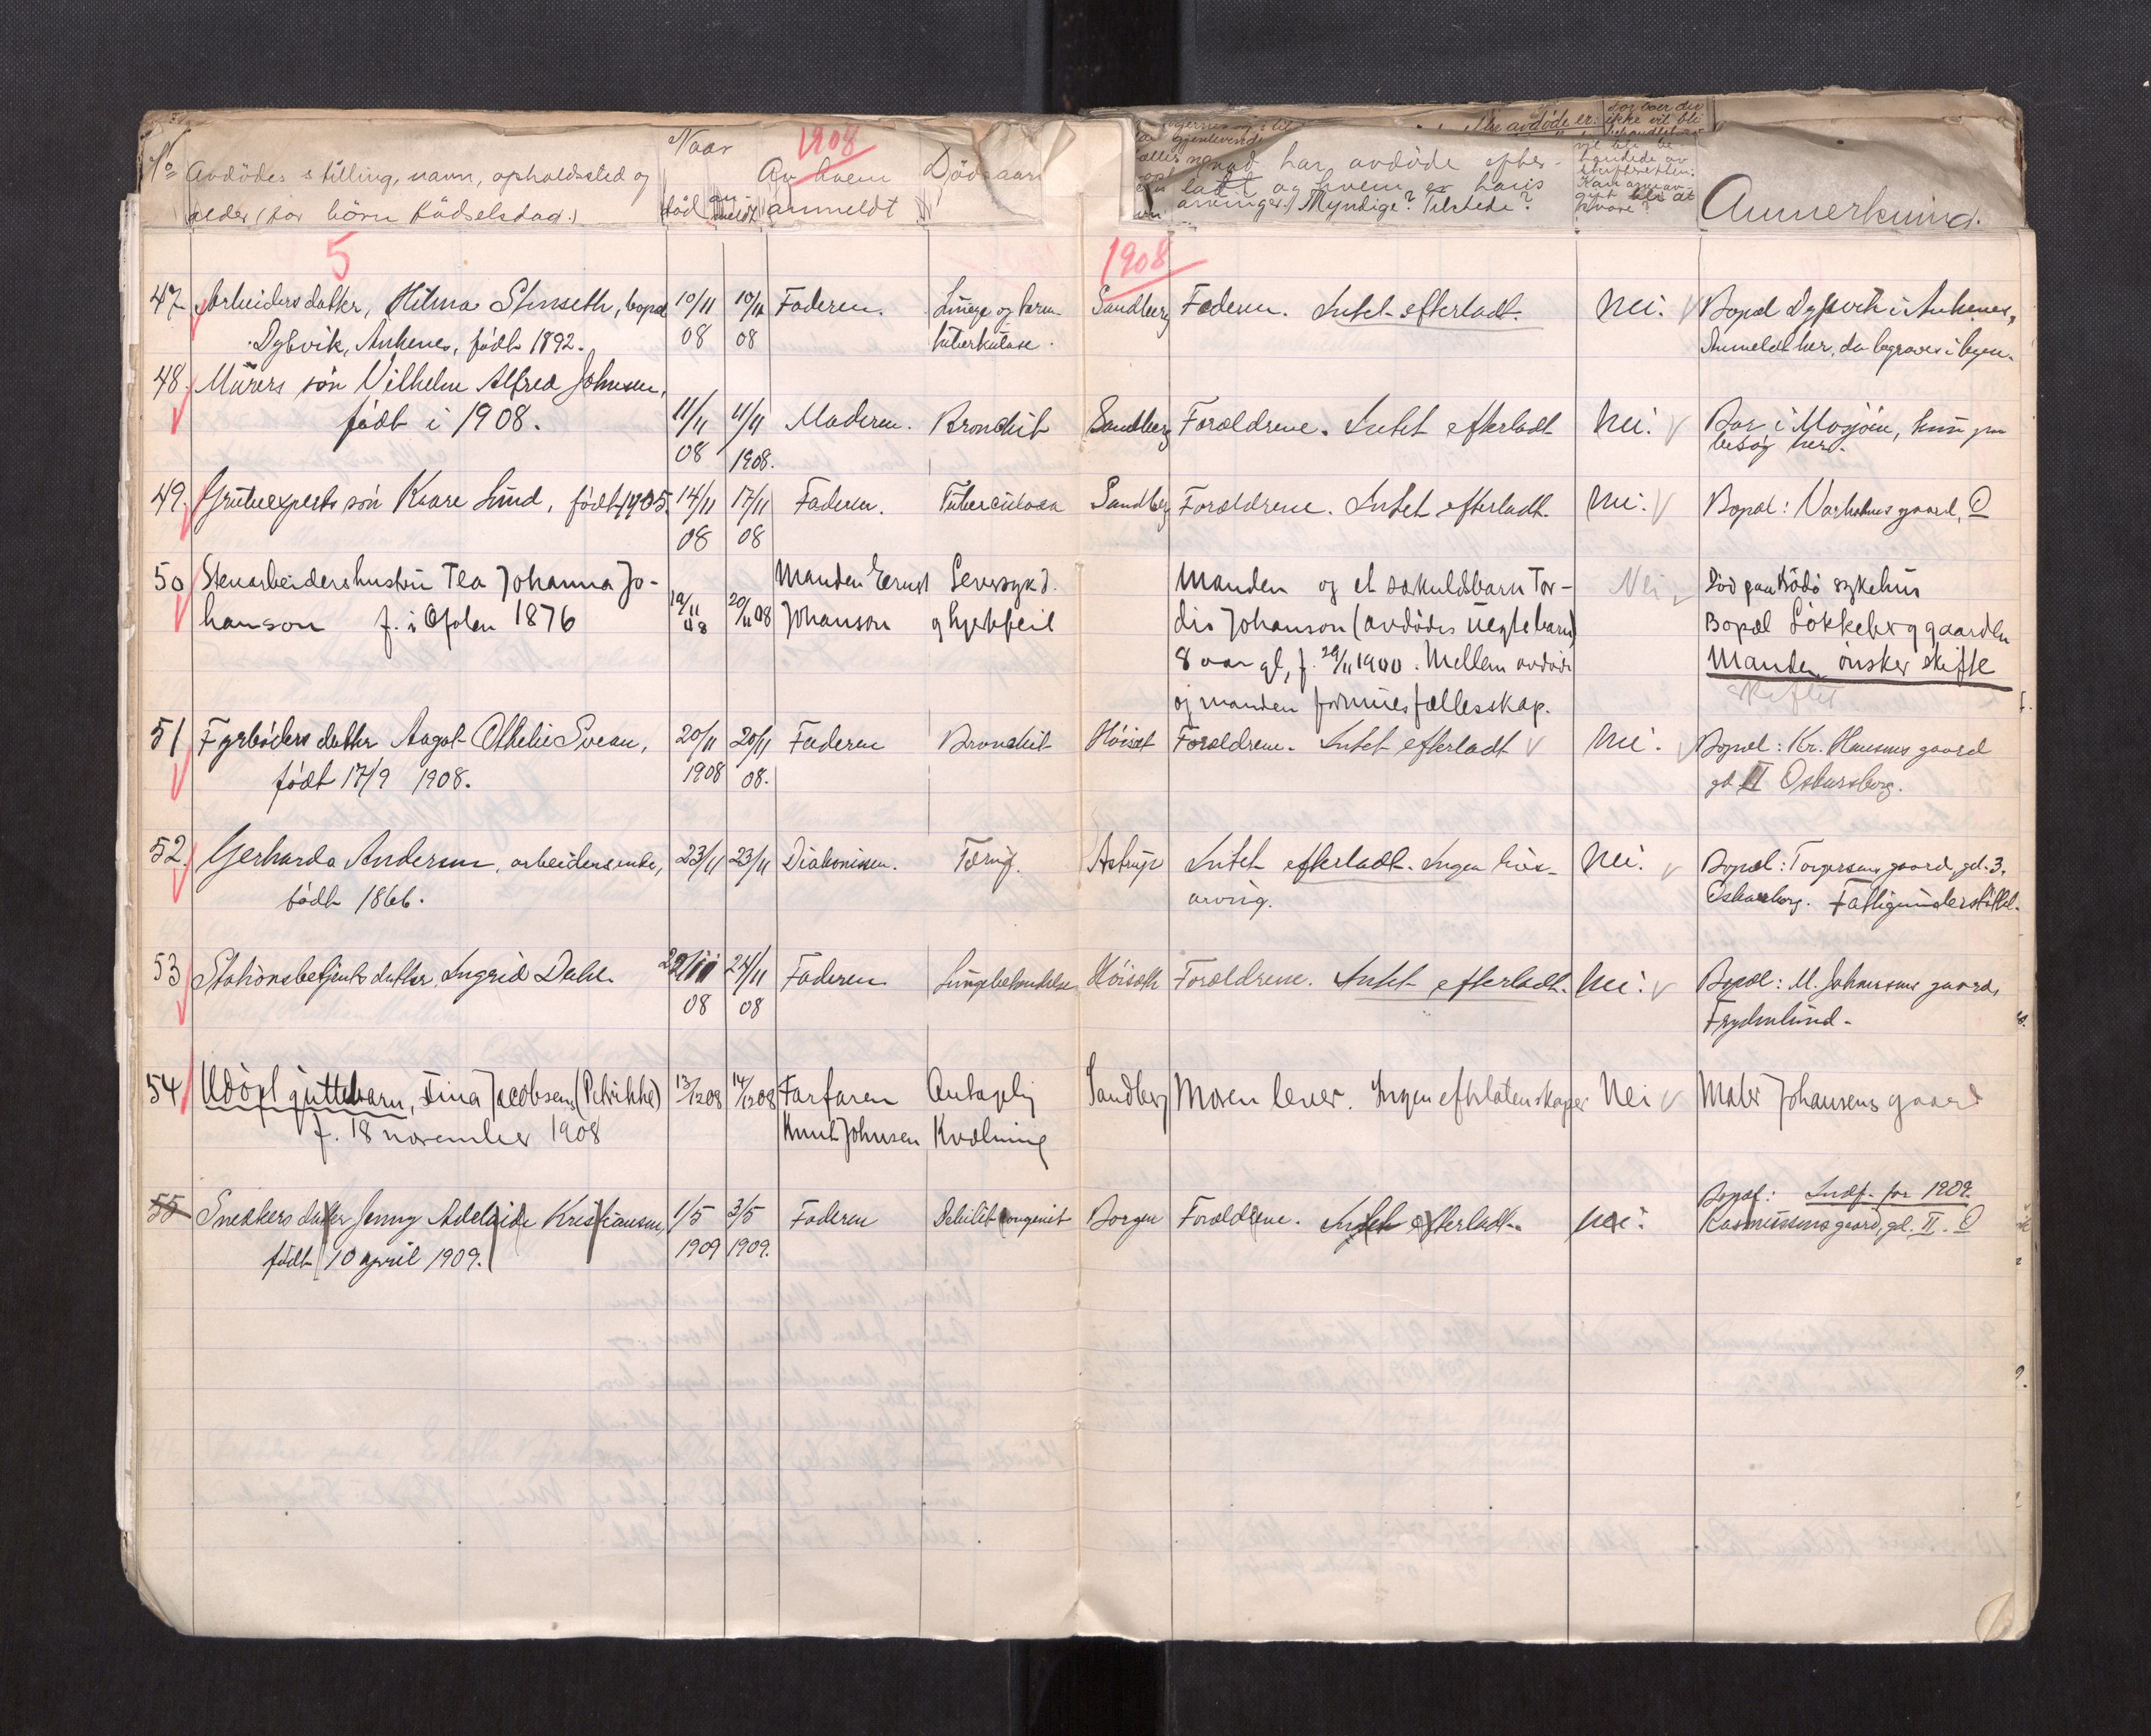 No Avdödes stilling, navn, opholdssted og
alder (for börn födselsdag.)
Naar
död an meldt
1908
Av hvem
anmeldt
Dödsaars
hvad har avdöde efter-
ladt og hvem er hans
arvinger? Myndige? Tilstede?
Anmerkning.
5
1908
47 Arbeiders datter, Hilma Stenseth, bopæl 10/11 10/11 Faderen. Lunge og tarm- Sandberg Faderen. Intet efterladt. Nei. Bopæl Dybvik i Ankenes,
Dybvik, Ankenes, født 1892. 08 08 tuberkulose. Anmeldt her, da begraves i byen.
48. Murers søn Vilhelm Alfred Johnsen,
født i 1908. 11/11 11/11 Moderen. Bronchit Sandberg Forældrene. Intet efterladt Nei. Bor i Mosjöen, kun paa
08 1908. besøg her.
49. søn Kaare Lund, født 1905. 14/11 17/11 Faderen. Tuberculosa Sandberg Forældrene. Intet efterladt. Nei. Bopæl: gaard, O
08 08
50 Stenarbeidershustru Tea Johanna Jo- Manden Ernst Leversykd. Manden og et særkuldsbarn Tor- Nei Död paa Bodö sykehus
hanson f. i Ofoten 1876 19/11 08 20/11 08 Johanson og hjertefeil dis Johanson (avdödes uegte barn) Bopæl Lökkeberggaarden
8 aar gl, f. 29/11 1900. Mellem avdöde Manden önsker skifte
og manden formuesfællesskap. skiftet
51 Fyrbøders datter Aagot Othelie Svean, 20/11 20/11 Faderen Bronchit Höiset Forældrene. Intet efterladt Nei. Bopæl: Kr. Hansens gaard
født 17/9 1908. 1908 08. gd. II Oskarsborg.
52. Gerharda Andersen, arbeidersenke, 23/11 23/11 Diakonissen. Tæring. Astrup Intet efterladt. Ingen livs- Nei. Bopæl: Torgersens gaard, gd. 3,
født 1866. arving. Oskarsborg. Fattigunderstöttet.
53 Stationsbetjents datter, Ingrid Dahl 11 24/11 Faderen Lungebetændelse Höiseth Forældrene. Intet efterladt. Nei. Bopæl: M. Johansens gaard,
08 08 Frydenlund.
54 Udöpt guttebarn, Tina Jacobsens (Petrikke) 13/12 08 14/12 08 Farfaren Antagelig Sandberg Moren lever. Ingen efterlatenskaper Nei Johansens gaard
f. 18 november 1908 Knut Johnsen Kvælning
Bopæl: Indf. for 1909.
55 Snekkers datter Jenny Adelaide Kristiansen, 1/5 3/5 Faderen Debilit. congenit Borgen Forældrene. Intet efterladt. Nei. Rasmussens gaard, gd. II. O
født 10 april 1909. 1909 1909.